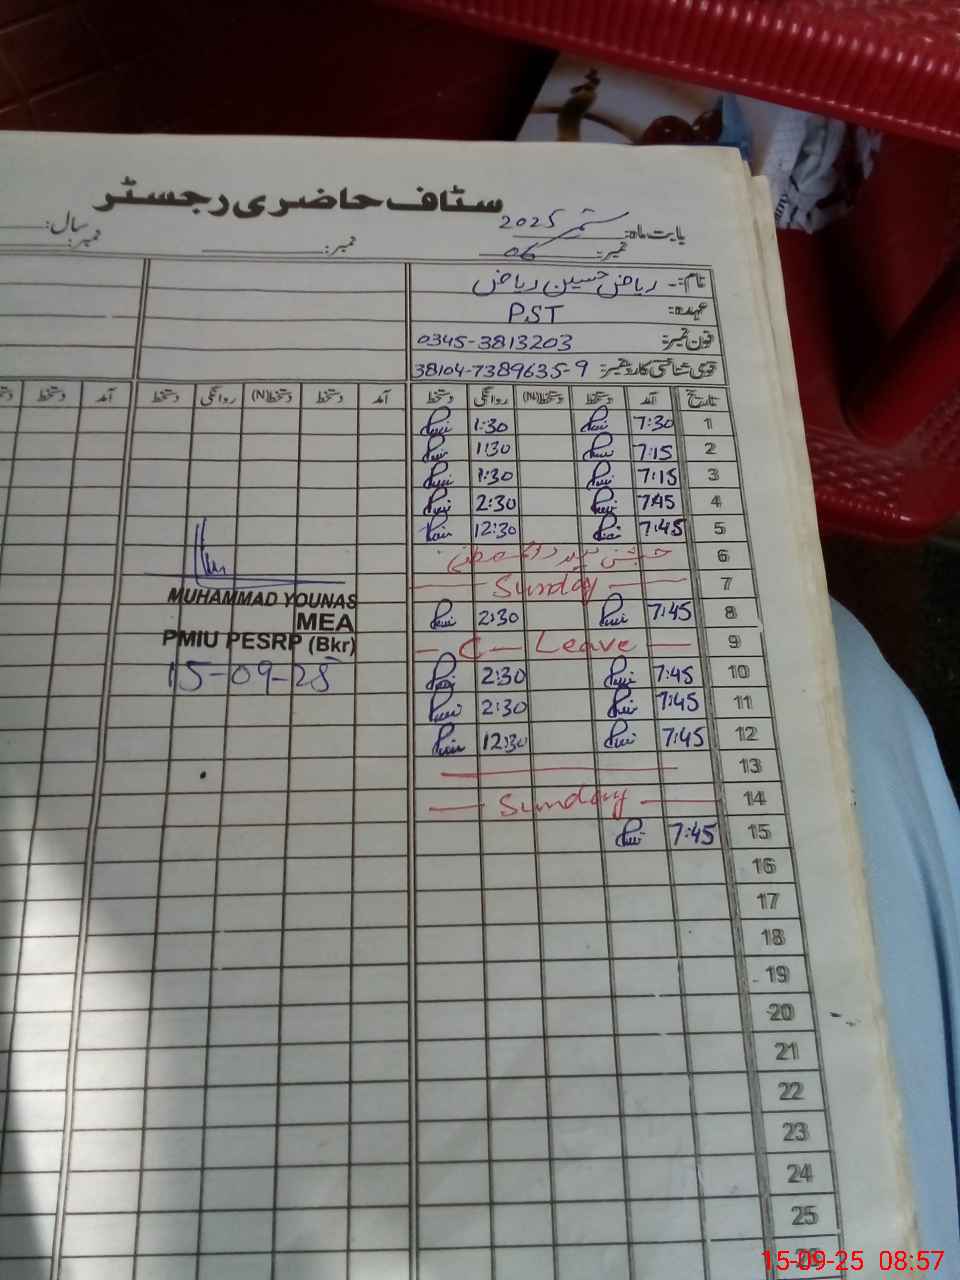 سٹاف حاضری رجسٹر
بابت ماہ: ستمبر 2025 سال:
نمبر: 06 نمبر: نمبر:
نام:- ریاض حسین ریاض
عہدہ: PST
فون نمبر: 0345-3813203
قومی شناختی کارڈ نمبر: 38104-7389635-9
تاریخ آمد دستخط دستخط(N) روانگی دستخط آمد دستخط دستخط(N) روانگی دستخط آمد دستخط
1 7:30 1:30
2 7:15 1:30
3 7:15 1:30
4 7:45 2:30
5 7:45 12:30
6 جشن عید
7 Sunday
8 7:45 2:30
9 C- Leave
10 7:45 2:30
11 7:45 2:30
12 7:45 12:30
13
14 Sunday
15 7:45
16
17
18
19
20
21
22
23
24
25
26
MUHAMMAD YOUNAS
MEA
PMIU PESRP (Bkr)
15-09-25
15-09-25 08:57